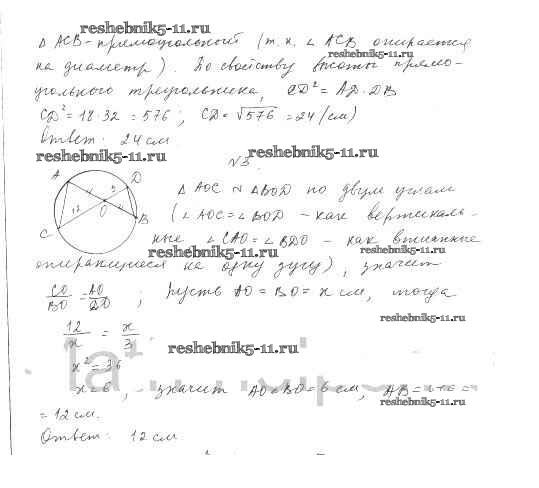 reshebnik5-11.ru
Δ ACB - прямоугольный (т.к. ∠ ACB опирается
reshebnik5-11.ru
на диаметр). По свойству высоты прямо-
угольного треугольника, CD² = AD · DB
CD² = 18 · 32 = 576 ; CD = √576 = 24 (см)
Ответ: 24 см.
reshebnik5-11.ru reshebnik5-11.ru
N3.
A x 3 D
O
12 x B
C
Δ AOC ~ ΔBOD по двум углам
(∠ AOC = ∠ BOD - как вертикаль-
ные ∠ CAO = ∠ BDO - как вписанные
reshebnik5-11.ru reshebnik5-11.ru
опирающиеся на одну дугу), значит
CO/BO = AO/OD ; пусть AO = BO = x см, тогда
reshebnik5-11.ru
12/x = x/3
reshebnik5-11.ru
x² = 36
x = 6, - значит AO = BO = 6 см, AB = 6+6 =
reshebnik5-11.ru
= 12 см.
Ответ: 12 см